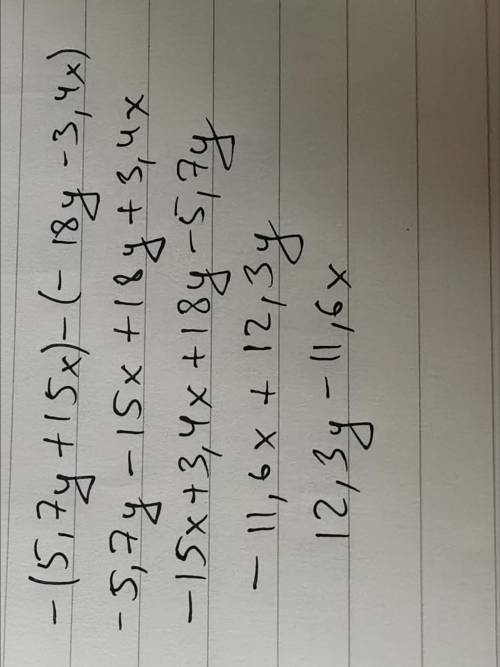 -(5,7y+15x)-(-18y-3,4x)
-5,7y-15x+18y+3,4x
-15x+3,4x+18y-5,7y
-11,6x+12,3y
12,3y-11,6x